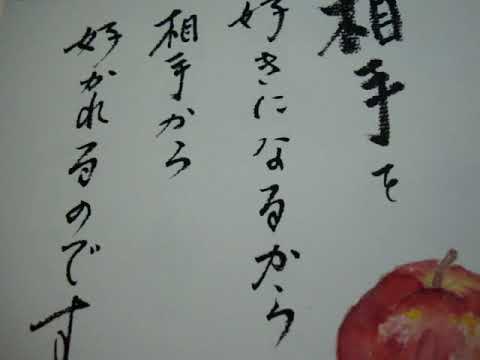 相手を
好きになるから
相手から
好かれるのです